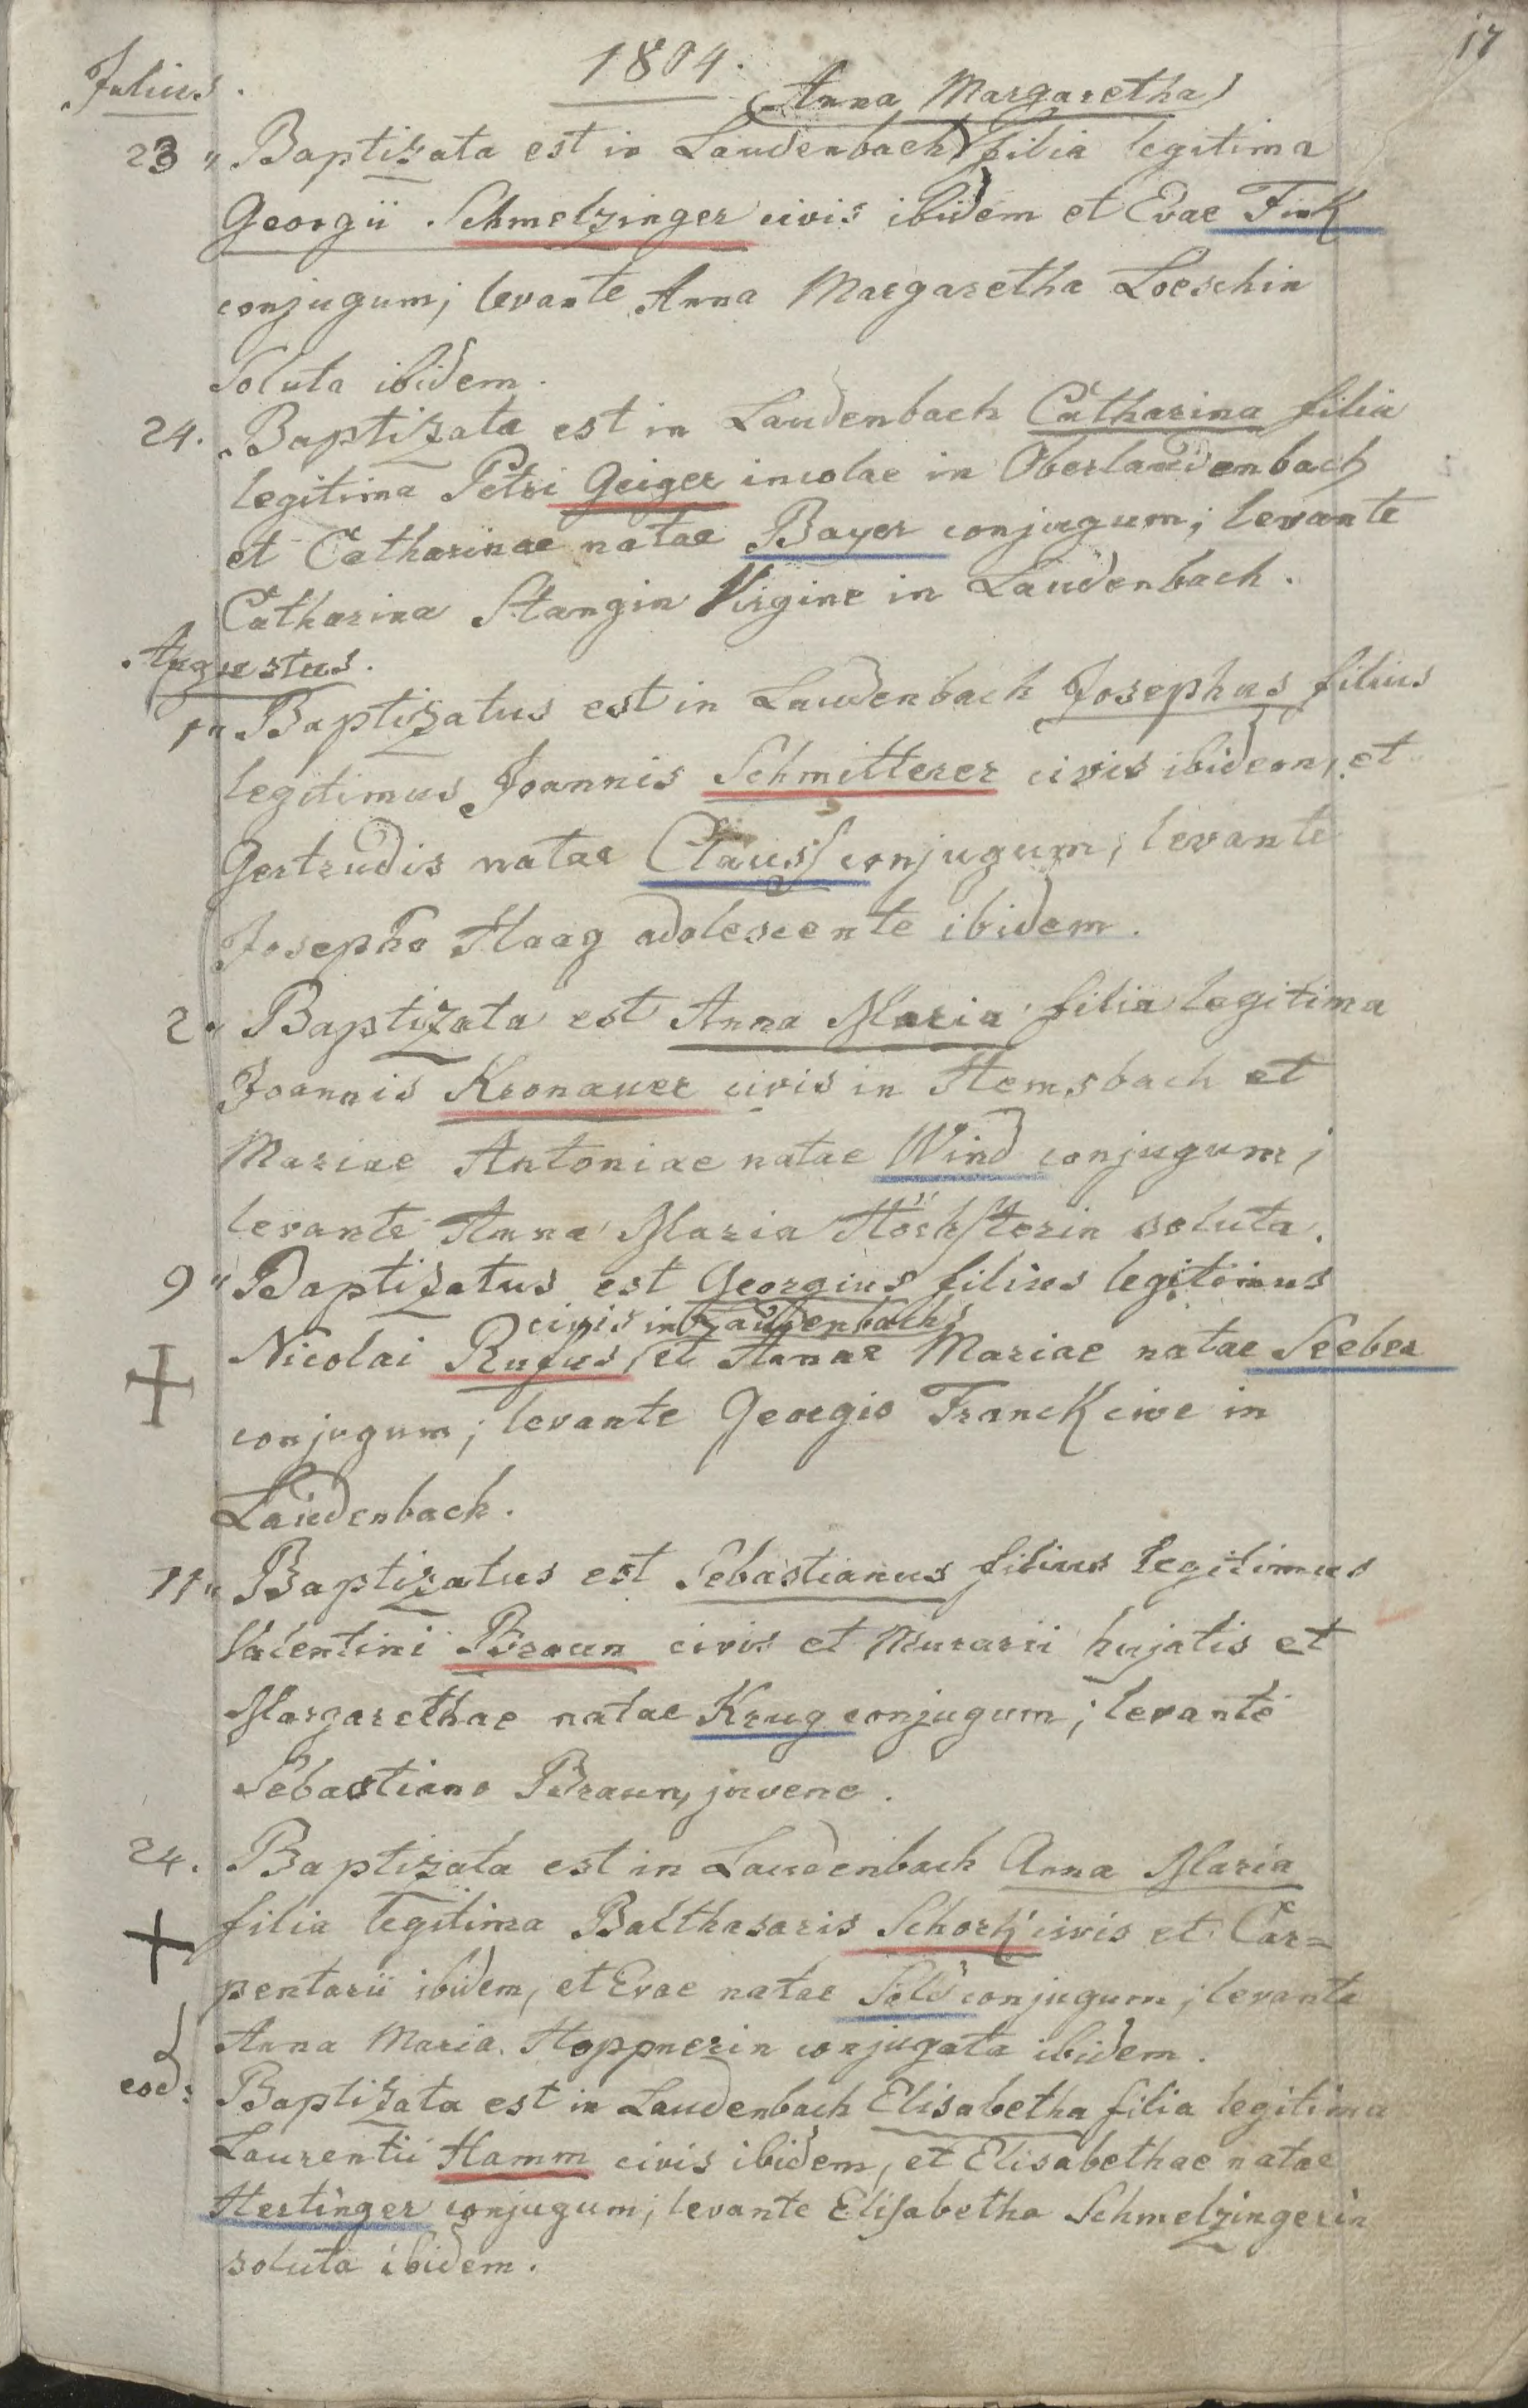 17
1804.
Julius.
(Anna Margaretha)
23 „ Baptizata est in Laudenbach filia legitima
Georgii Schmelzinger civis ibidem et Evae Fink
conjugum; levante Anna Margaretha Loeschin
soluta ibidem.
24. Baptizata est in Laudenbach Catharina filia
legitima Petri Geiger incolae in Oberlaudenbach
et Catharinae natae Bayer conjugum; levante
Catharina Stangin Virgine in Laudenbach.
Augustus.
1„ Baptizatus est in Laudenbach Josephus filius
legitimus Joannis Schmitterer civis ibidem, et
Gertrudis natae Clauss conjugum; levante
Josepho Haag adolescente ibidem.
2„ Baptizata est Anna Maria filia legitima
Joannis Kronauer civis in Hemsbach et
Mariae Antoniae natae Wind conjugum;
levante Anna Maria Höchsterin soluta.
9„ Baptizatus est Georgius filius legitimus
civis in Laudenbach
Nicolai Rufus et Annae Mariae natae Seeber
conjugum; levante Georgio Franck cive in
Laudenbach.
11„ Baptizatus est Sebastianus filius legitimus
Valentini Braun civis et Murarii hujatis et
Margarethae natae Krug conjugum; levante
Sebastiano Braun, juvene.
24. Baptizata est in Laudenbach Anna Maria
filia legitima Balthasaris Schork civis et Car=
pentarii ibidem, et Evae natae conjugum; levante
Anna Maria Hoppnerin conjugata ibidem.
eod: Baptizata est in Laudenbach Elisabetha filia legitima
Laurentii Hamm civis ibidem, et Elisabethae natae
Hertinger conjugum; levante Elisabetha Schmelzingerin
soluta ibidem.